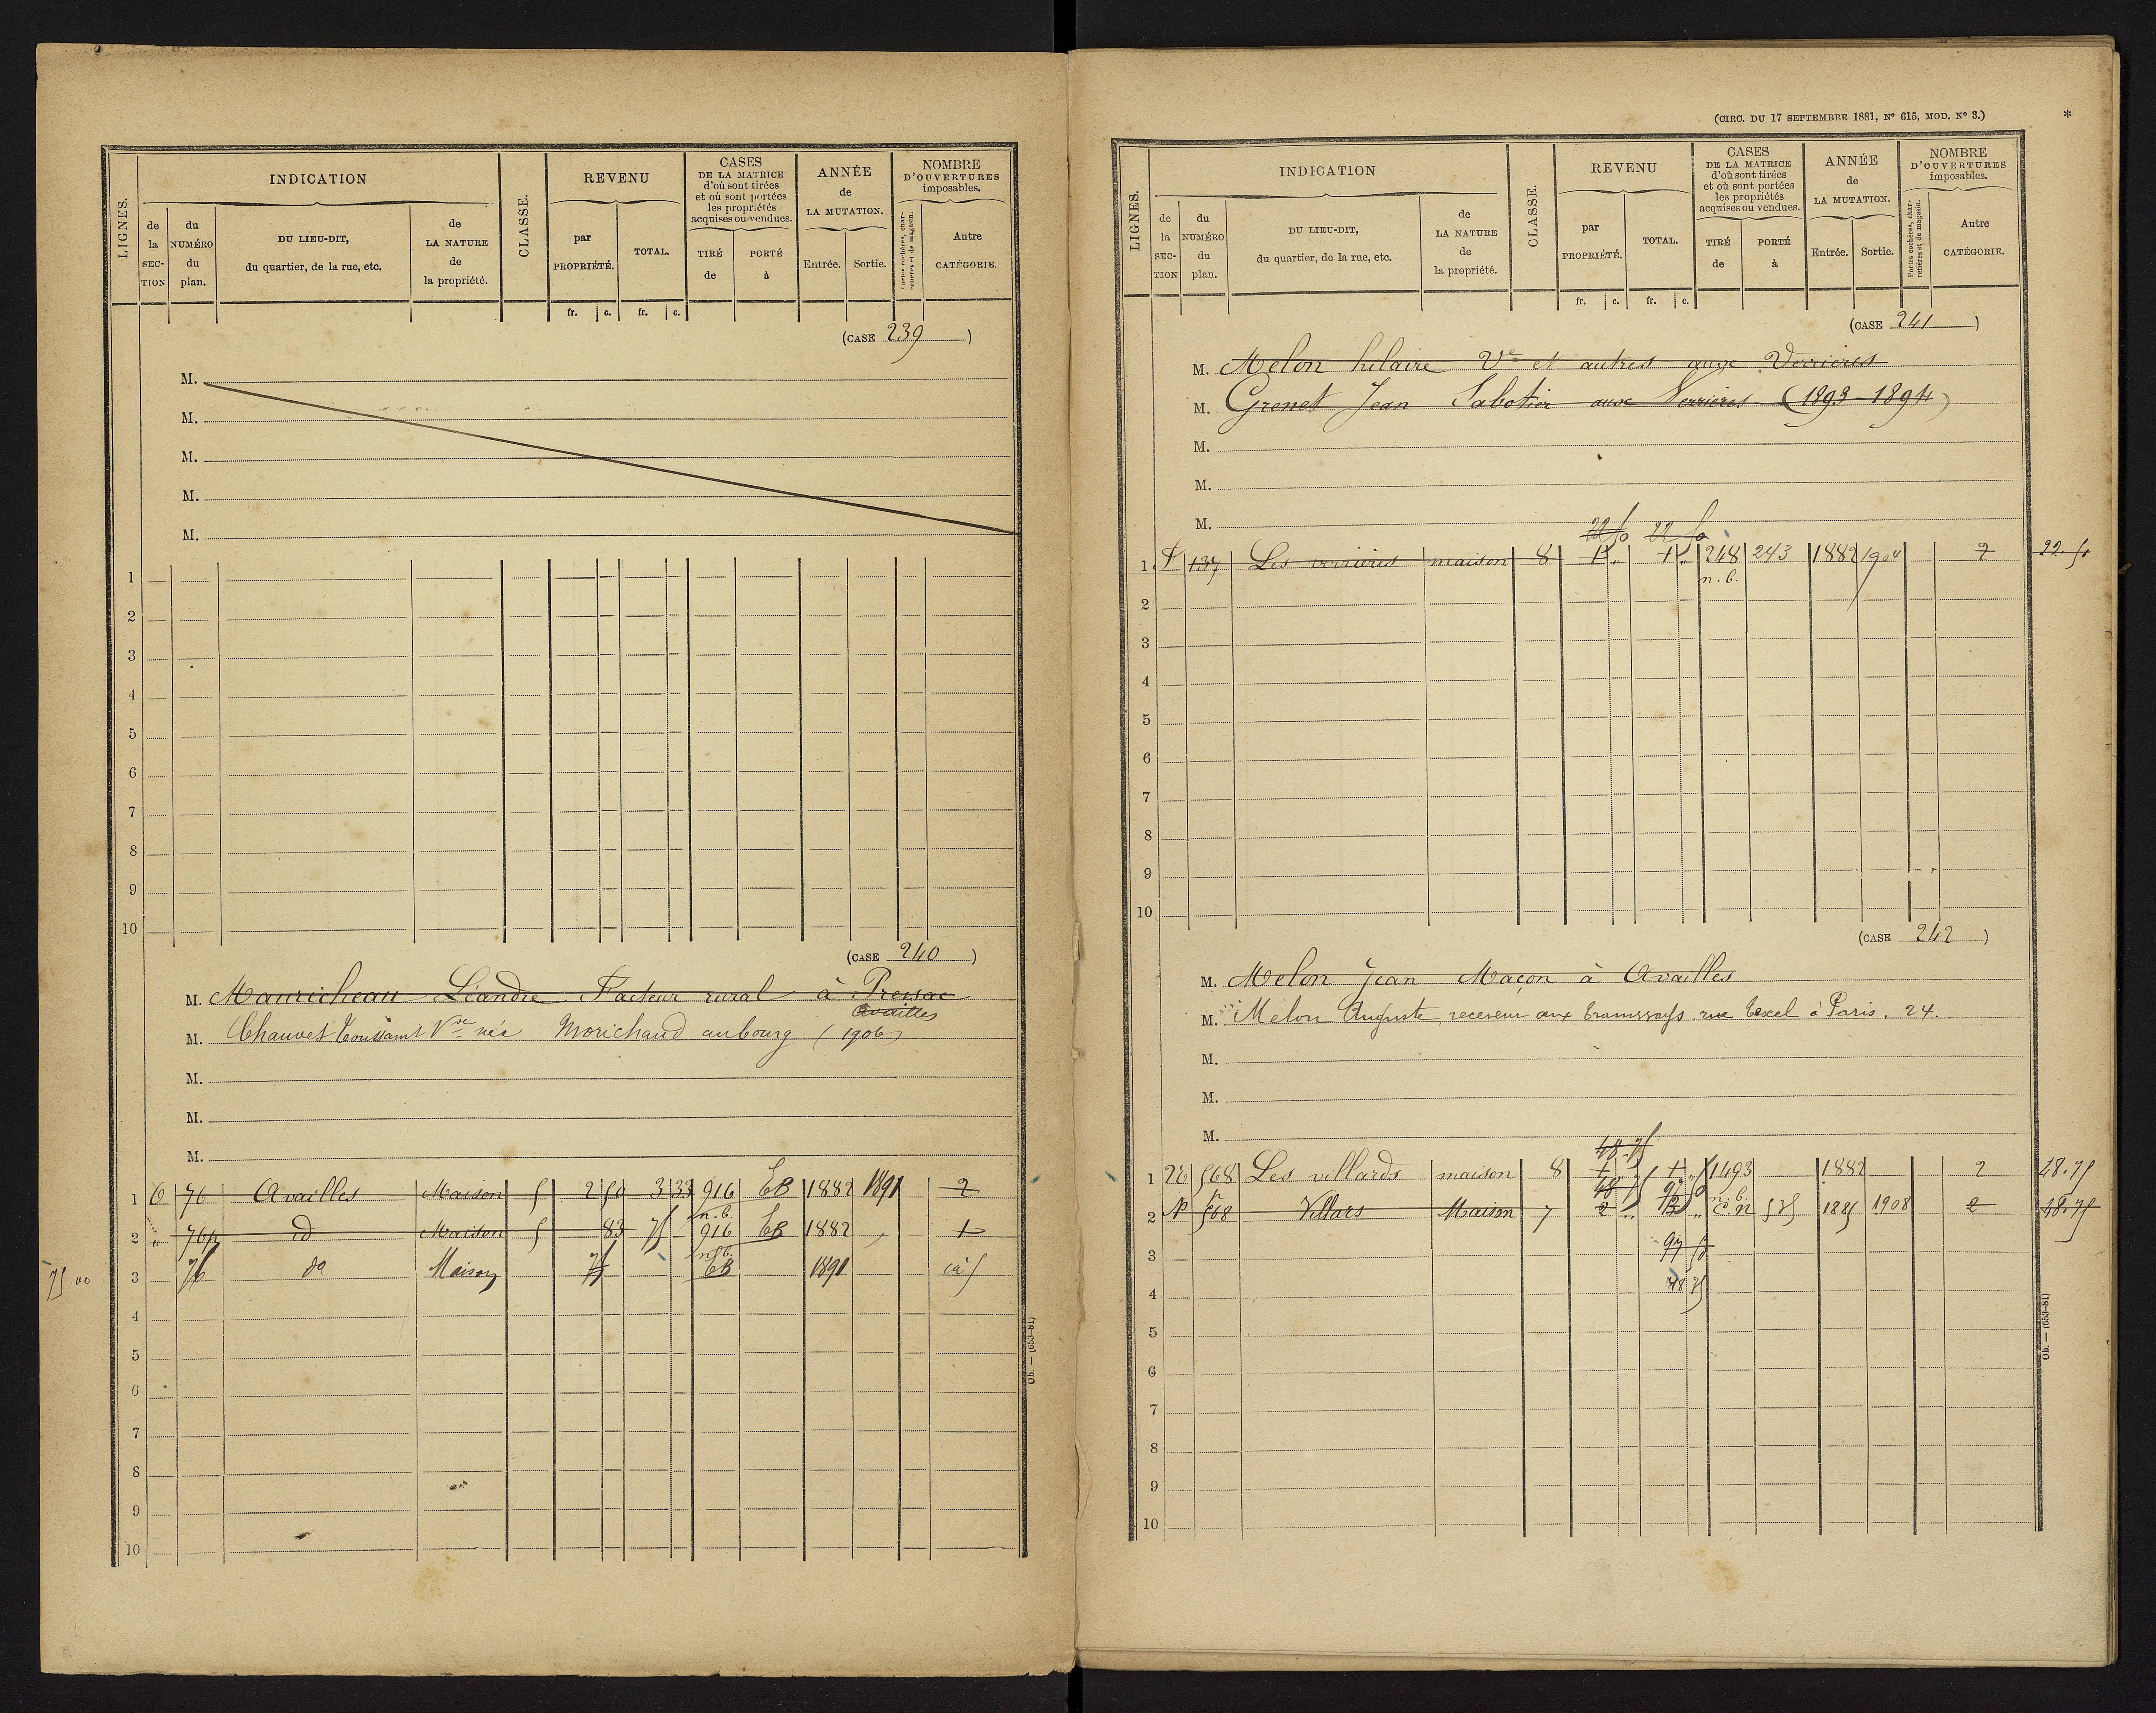 LIGNES.
INDICATION
CLASSE.
REVENU
CASES
DE LA MATRICE
d'où sont tirées
et où sont portées
les propriétés
acquises ou vendues.
ANNÉE
de
LA MUTATION.
NOMBRE
D'OUVERTURES
imposables.
de la SEC-TION
du NUMÉRO du plan.
DU LIEU-DIT,
du quartier, de la rue, etc.
de LA NATURE de la propriété.
par PROPRIÉTÉ.
TOTAL.
TIRÉ de
PORTÉ à
Entrée.
Sortie.
Portes cochères, charretières et de magasin.
Autre CATÉGORIE.
fr. c. fr. c.
(CASE 239 )
M.
M.
M.
M.
M.
1
2
3
4
5
6
7
8
9
10
(CASE 240 )
M. Mauricheau Léandre Facteur rural à Pressac
Availles
M. Chauvet Toussaint Vve née Morichaud au bourg (1906)
M.
M.
M.
1 C 76 Availles Maison 5 2 50 3 33 916 CB 1882 1891 2
n.b.
2 " 76p id Maison 5 83 75 916 CB 1882 1
n.b.
75.00 3 76 do Maison 75 CB 1891 5
4
5
6
7
8
9
10
Ob. — (653-81)
(CIRC. DU 17 SEPTEMBRE 1881, N° 615, MOD. N° 3.) *
LIGNES.
INDICATION
CLASSE.
REVENU
CASES
DE LA MATRICE
d'où sont tirées
et où sont portées
les propriétés
acquises ou vendues.
ANNÉE
de
LA MUTATION.
NOMBRE
D'OUVERTURES
imposables.
de la SEC-TION
du NUMÉRO du plan.
DU LIEU-DIT,
du quartier, de la rue, etc.
de LA NATURE de la propriété.
par PROPRIÉTÉ.
TOTAL.
TIRÉ de
PORTÉ à
Entrée.
Sortie.
Portes cochères, charretières et de magasin.
Autre CATÉGORIE.
fr. c. fr. c.
(CASE 241 )
M. Melon hilaire Ve et autres aux Verrieres
M. Grenet Jean Sabotier aux Verrieres (1893-1894)
M.
M.
M.
22 50 22 50
1 137 Les verrieres maison 8 1 " 1 " 248 243 1882 1904 2 22.50
n.b.
2
3
4
5
6
7
8
9
10
(CASE 242 )
M. Melon Jean Maçon à Availles
M. Melon Auguste, receveur aux tramways rue Texel à Paris. 24.
M.
M.
M.
48.75
1 568 Les villards maison 8 1 1 1493 1882 2 48.75
48 75 97 50 n.b.
2 568 Villars Maison 7 2 " " C.N 525 1885 1908 2 48.75
3 97 50
4 48 75
5
6
7
8
9
10
Ob. — (653-81)